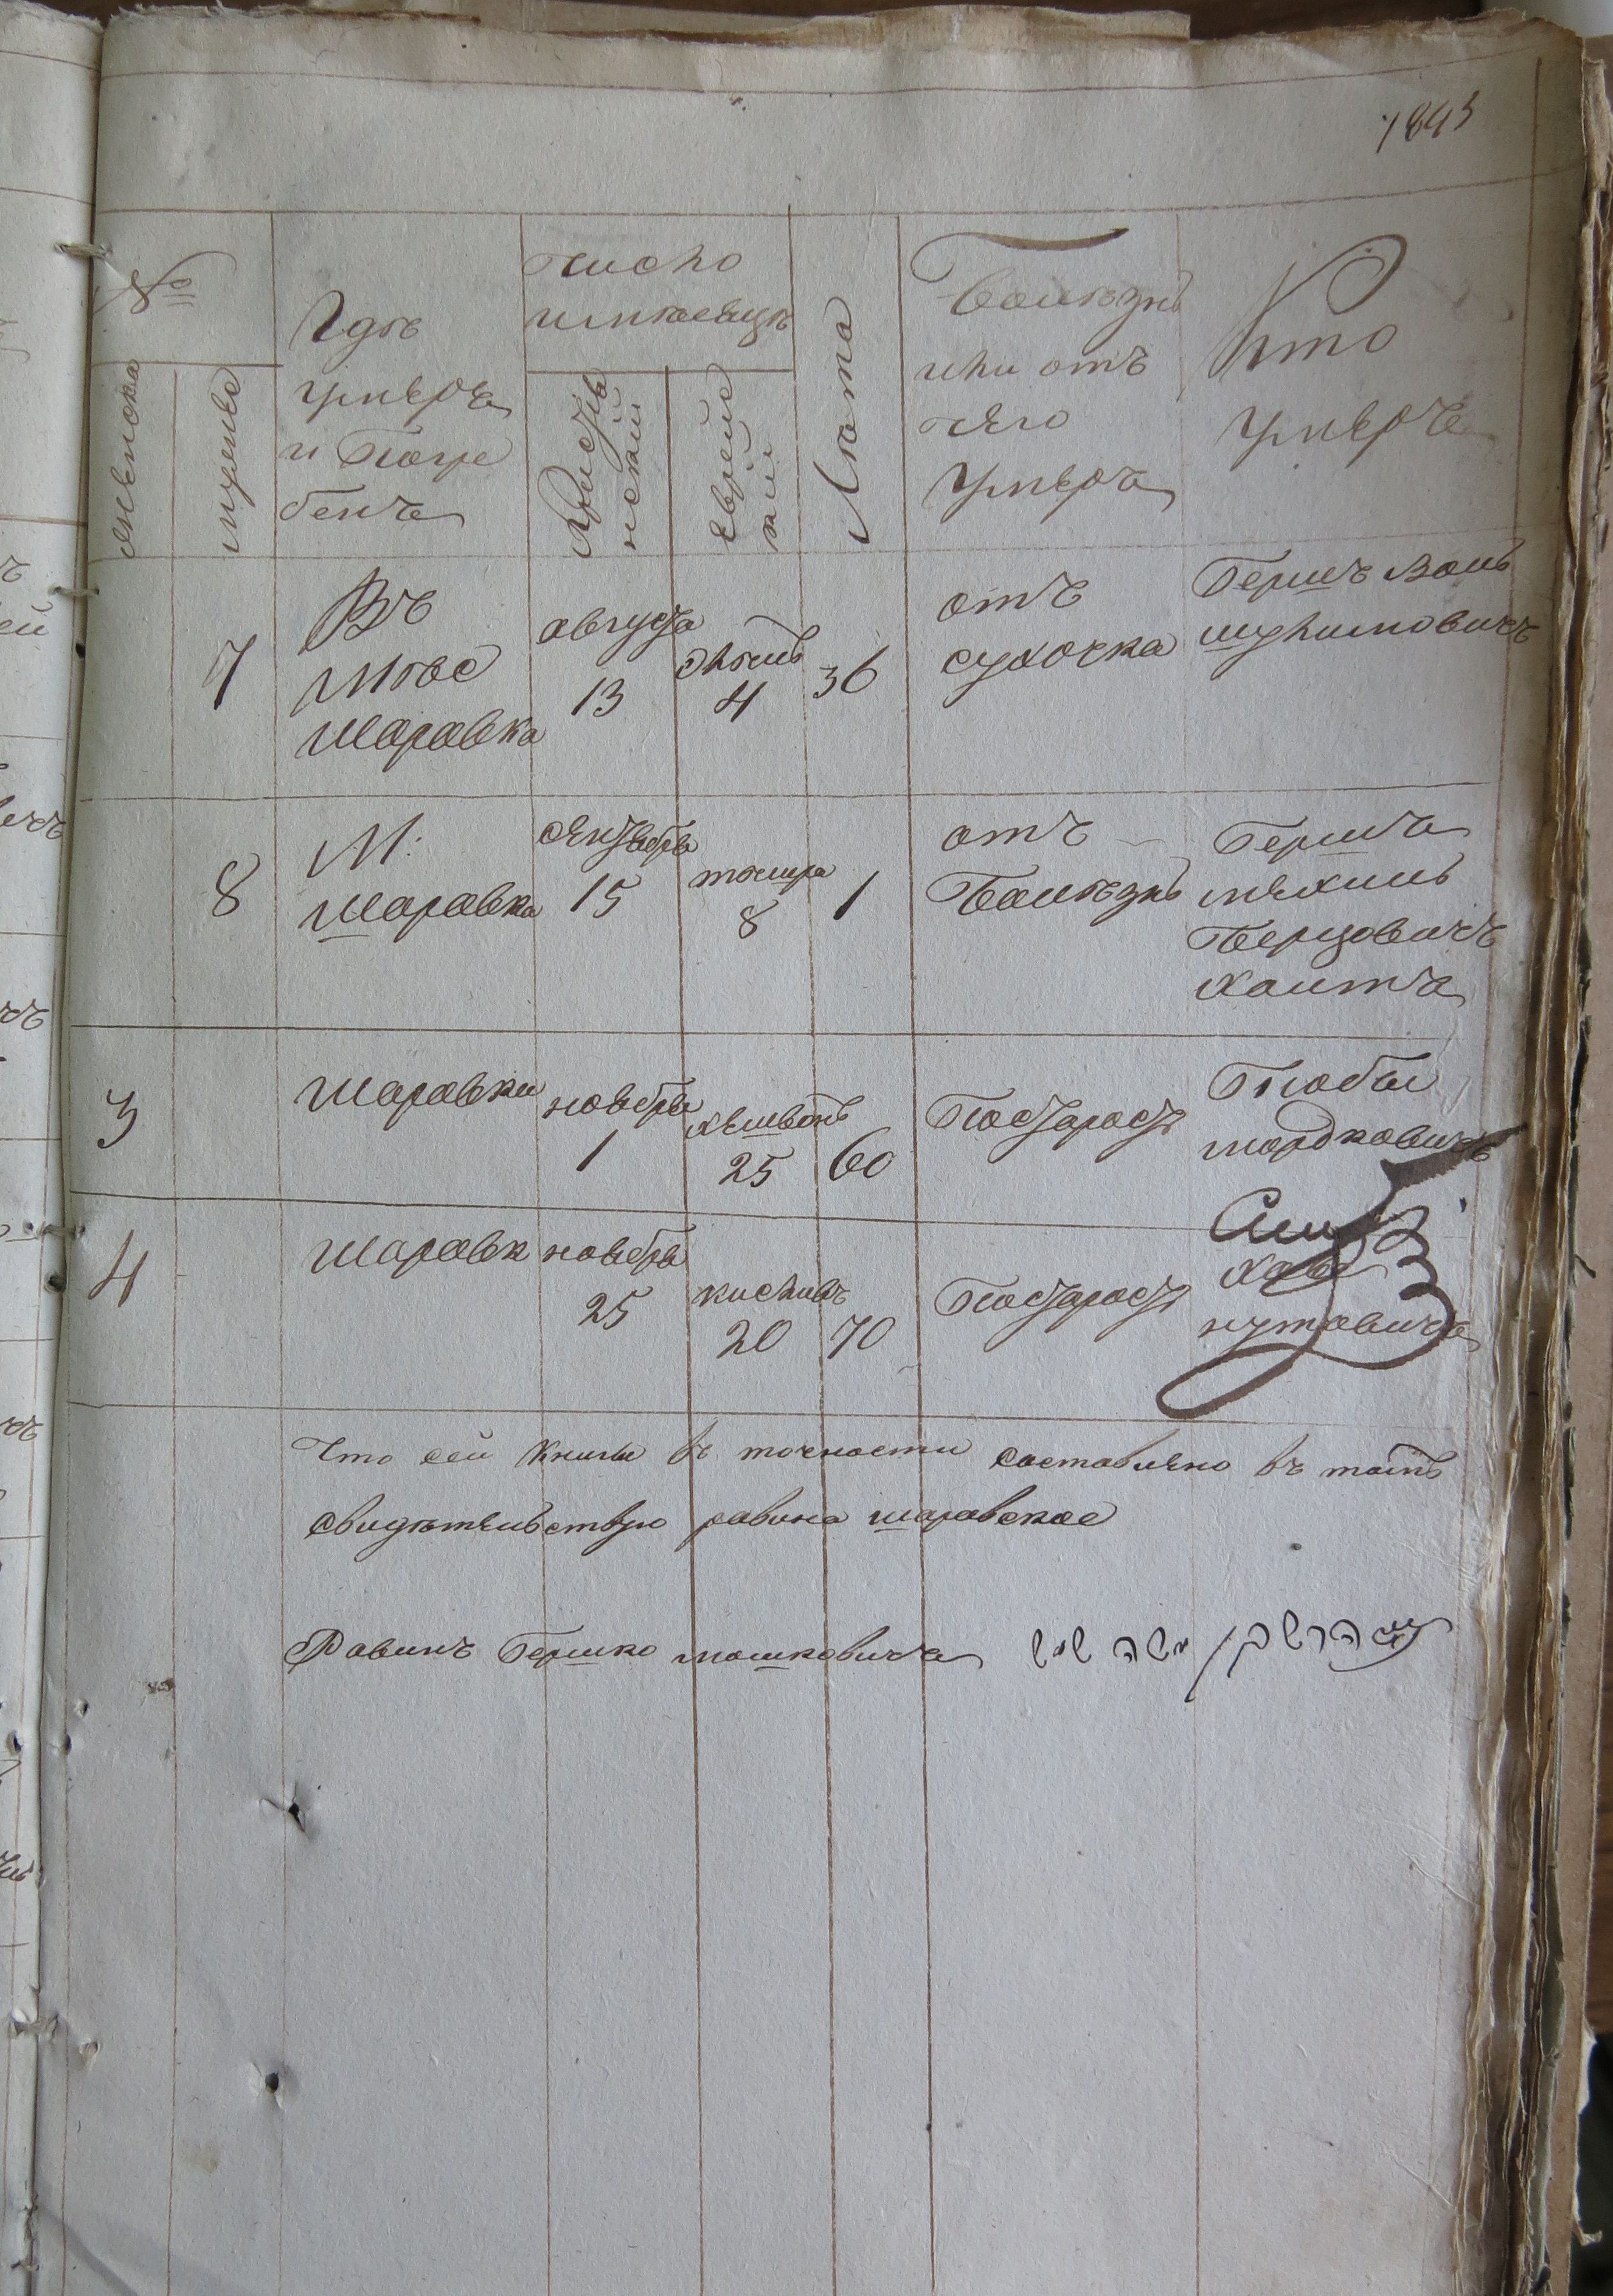 1843
№
женска
мужеска
Где
умеръ
и Погре
бенъ
число
имѣсецъ
Христіа
нский
Еврейс
кий
Лѣта
Болѣзнь
или отъ
чего
умеръ
Кто
умеръ
7
Въ
Мѣсе
Шаравка
августа
13
Элюль
4
36
отъ
сухочка
Гершъ
Шулимовичъ
8
М:
Шаравка
сентября
15
тишра
8
1
отъ
Болѣзнь
Гершъ
мехиль
Берковичъ
3
Шаравки
ноября
1
хешвонь
25
60
Постарость
мордковичъ
4
Шаравк
ноября
25
кисливъ
20
70
Постарость
Хава
нутовичъ
Что сей книги въ точности составлено въ томъ
свидѣтельствую равина шаравское
Равинъ Гершко мошковичъ